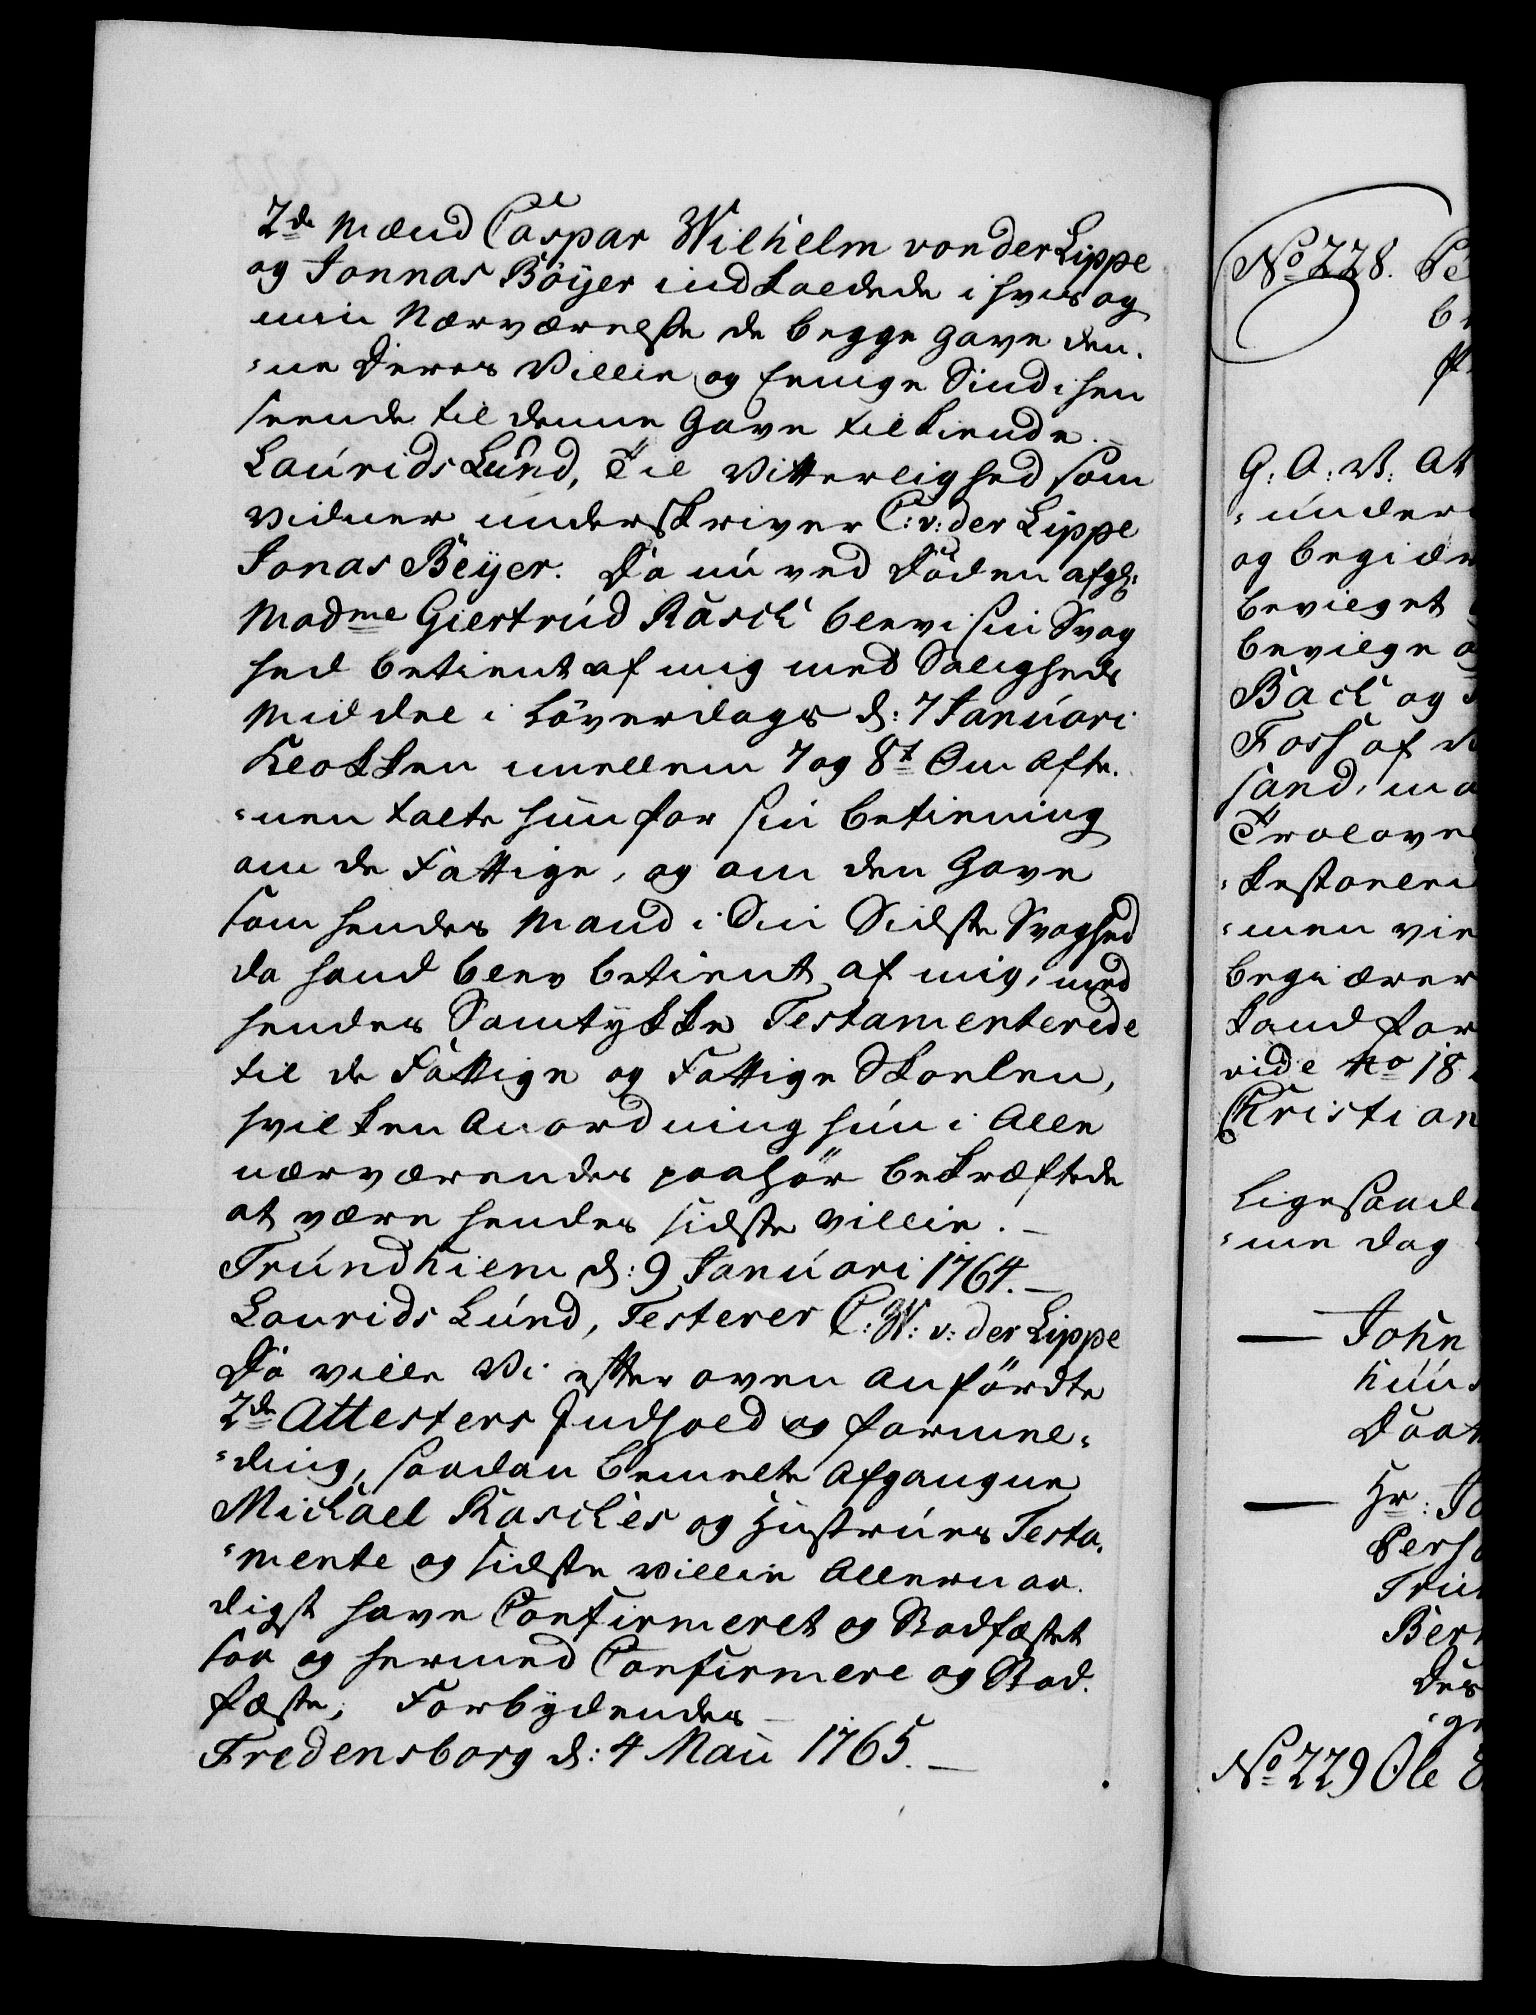 2de Mænd Caspar Wilhelm von der Lippe
og Jonnas Böÿer indkaldede i hvis og
min Nærværelse de begge gave den-
-ne Deres Villie og Eenige Sind i hen
seende til denne Gave tilkiende. —
Laurids Lund, Til Vitterlighed som
Vidner underskriver C: v: der Lippe
Jonas Beÿer. Da nu ved Döden afg:
Madme Giertrud Rasch blev i sin Svag
hed betient af mig med Saligheds
Middel i Löverdags d: 7 Januari
Klokken imellem 7 og 8t Om Afte-
-nen talte hun for sin betiening
om de Fattige, og om den Gave
som hendes Mand i Sin Sidste Svaghed
da hand blev betient af mig, med
hendes Samtÿkke Testamenterede
til de Fattige og Fattige Skolen,
hvilken Anordning hun i Alle
nærværendes paahör bekræftede
at være hendes sidste Villie. —
Trundhiem d: 9 Januari 1764. —
Laurids Lund, Testerer C: W: v: der Lippe
Da ville Vi efter oven Anfördte
2de Attesters Indhold og formel-
-ding, saadan bemelte Afgangne
Michael Rasches og Hustrues Testa-
-mente og sidste Villie Allernaa-
digst have Confirmeret og Stadfæstet
saa og hermed Confirmere og Stad-
fæste; Forbÿdendes —
Fredensborg d: 4 Maii 1765. —
No 228. Pe
G: A: V: At
-under
og begiær
bevilget
bevilge
Bach og
Foss af
sand, ma
Trolove
-men vie
begiærer
kand for
vide No 18
Christian
Ligesaad
-me dag
— John
huus
— Hr: Jo
Perso
Des
No 229 Ole